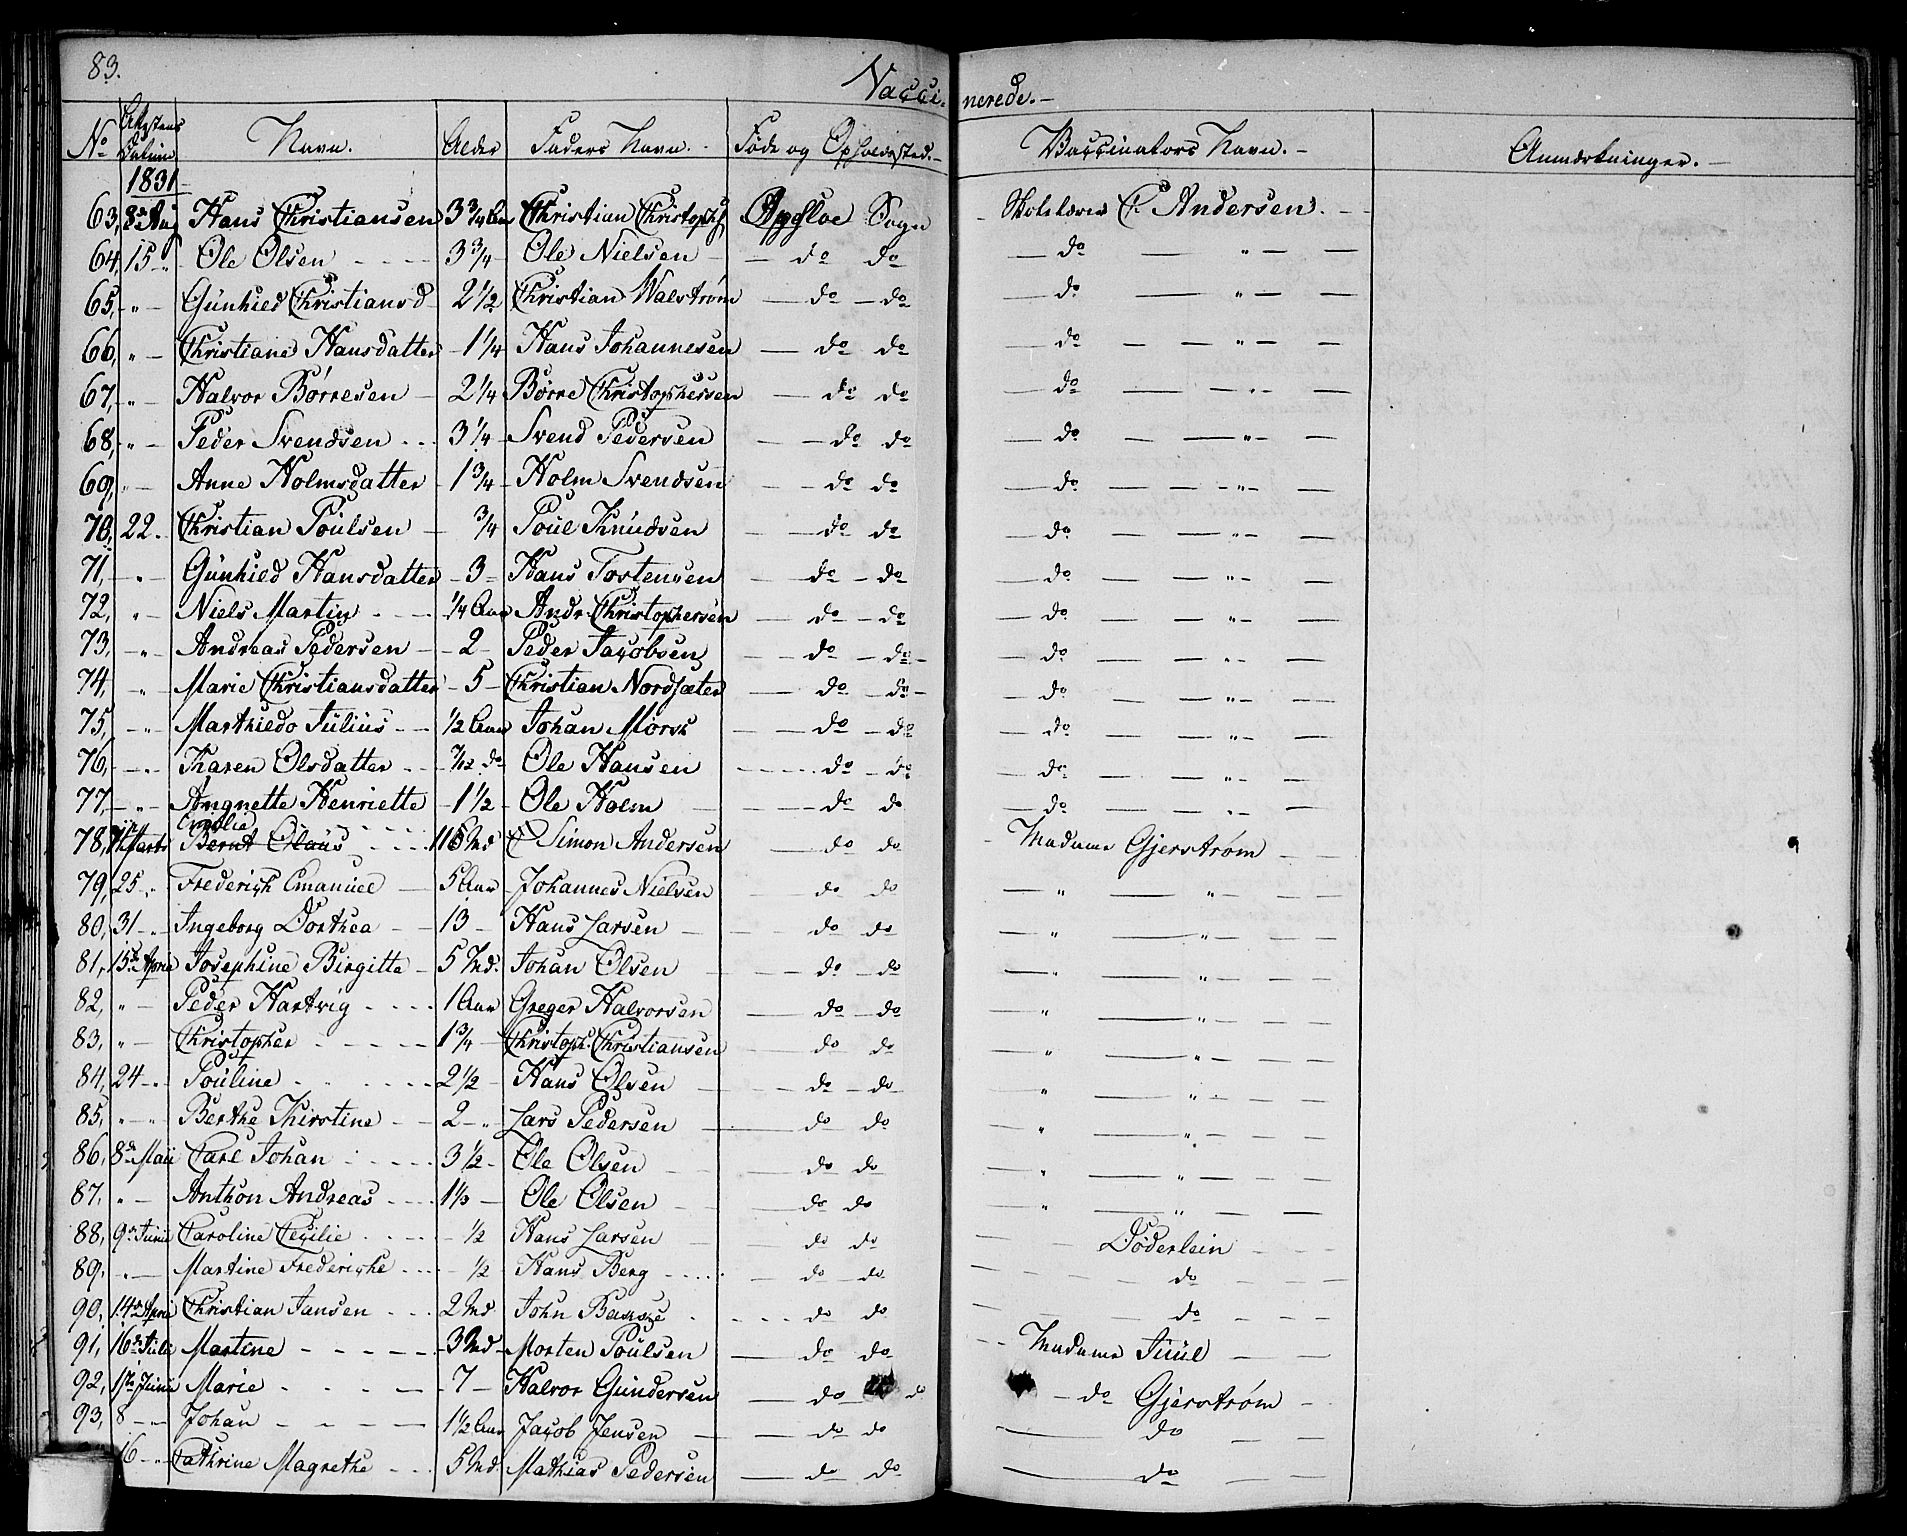 83.
Vacci- nerede.-
No Attestens Datum Navn. Alder Faders Navn. Føde og Opholdssted.- Vaccinators Navn.- Anmærkninger.-
1831
63, 8de Aug Hans Christiansen 3 3/4 Aar Christian Christophs Opsloe Sogn Skolelærer C. Andersen.
64, 15 - Ole Olsen 3 3/4 Ole Nielsen - do do - do - " -
65, " - Gunhild Christiansd 2 1/2 Christian Walstrøm - do - do - do - " -
66, " - Christiane Hansdatter - 1 1/4 Hans Johannesen - do do - do - " -
67, " - Halvor Børresen - 2 1/4 Børre Christophersen - do do - do - " -
68, " - Peder Svendsen - 3 1/4 - Svend Pedersen - do do - do - " -
69, " - Anne Holmsdatter - 1 3/4 - Holm Svendsen - do do - do - " -
70, 22. Christian Poulsen - 3/4 Poul Knudsen - do do - do - " -
71, - " Gunhild Hansdatter - 3 - Hans Tostensen - do - do - do - " -
72, " Niels Martin - 1/4 Aar Andr. Christophersen - do - do - do - " -
73, - " Andreas Pedersen - 2 - Peder Jacobsen - do - do - - do - " -
74, - " Marie Christiansdatter - 5 - Christian Nordsæter - do - do - - do - " -
75, - " Marthilde Julius - 1/2 Aar Johan Morsk - do - do - do - " -
76, - " Karen Olsdatter - 7/12 do Ole Hansen - do - do - do - " -
77, - " - Angnette Henriette - 1 1/2 - Ole Holm - do do - do - " -
Emilie
78, Marts Bernt Olaus - Md C Simon Andersen - do do - Madame Gjerstrøm
79, 25 - Frederich Emanuel - 5 Aar - Johannes Nielsen do do - " - "
80, 31 - Ingeborg Dorthea - 13 - Hans Larsen - do do - " - "
81, 15de April Josephine Birgitte - 5 Md. Johan Olsen - do - do - " - "
82, " - Peder Hartvig - 1 Aar Greger Halvorsen - do - do - " - "
83, " - Christopher - 1 3/4 - Christoph. Christiansen do do - " - "
84, 24 - Pouline - 2 1/2 - Hans Olsen - do - do " - "
85, " - Berthe Kirstine - 2 - " Lars Pedersen - do do " - "
86, 8de Maii Carl Johan - 3 1/2 - Ole Olsen - do do " - "
87, " - Anthon Andreas - 1 1/3 - Ole Olsen - do do " - "
88, 9de Junii Caroline Cecilie - 1/2 Hans Larsen - do do - Døderlein -
89, " - Martine Frederiche - 1/2 Hans Berg - do - do - do -
90, 14de April Christian Jansen - 2 Md John - do do - do -
91, 16de Julii Martine - 3 Md - Morten Poulsen - do do - Madame Juul -
92, 1ste Junii Marie - 7 - Halvor Gundersen - do - do - do Gjerstrøm -
93, 8 - Johan - 1 1/2 Aar Jacob Jensen - do do - do -
16 - Cathrine Magrethe - 5 Md Mathias Pedersen - do do - do -